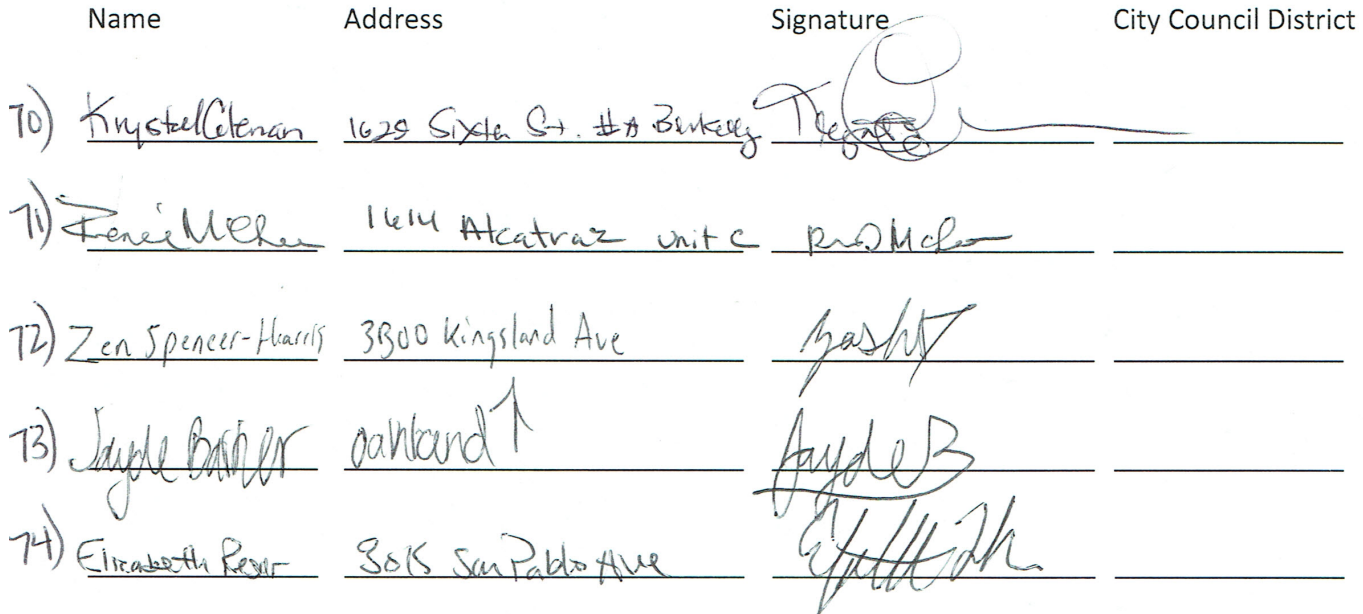 Name Address Signature City Council District
70) Krystal Coleman 1629 Sixth St. #A Berkeley
71) Renée 1614 Alcatraz unit C
72) Zen Spencer-Harris 3300 Kingsland Ave
73) Jayde Barber oakland ↑ Jayde B
74) Elizabeth 3015 San Pablo Ave